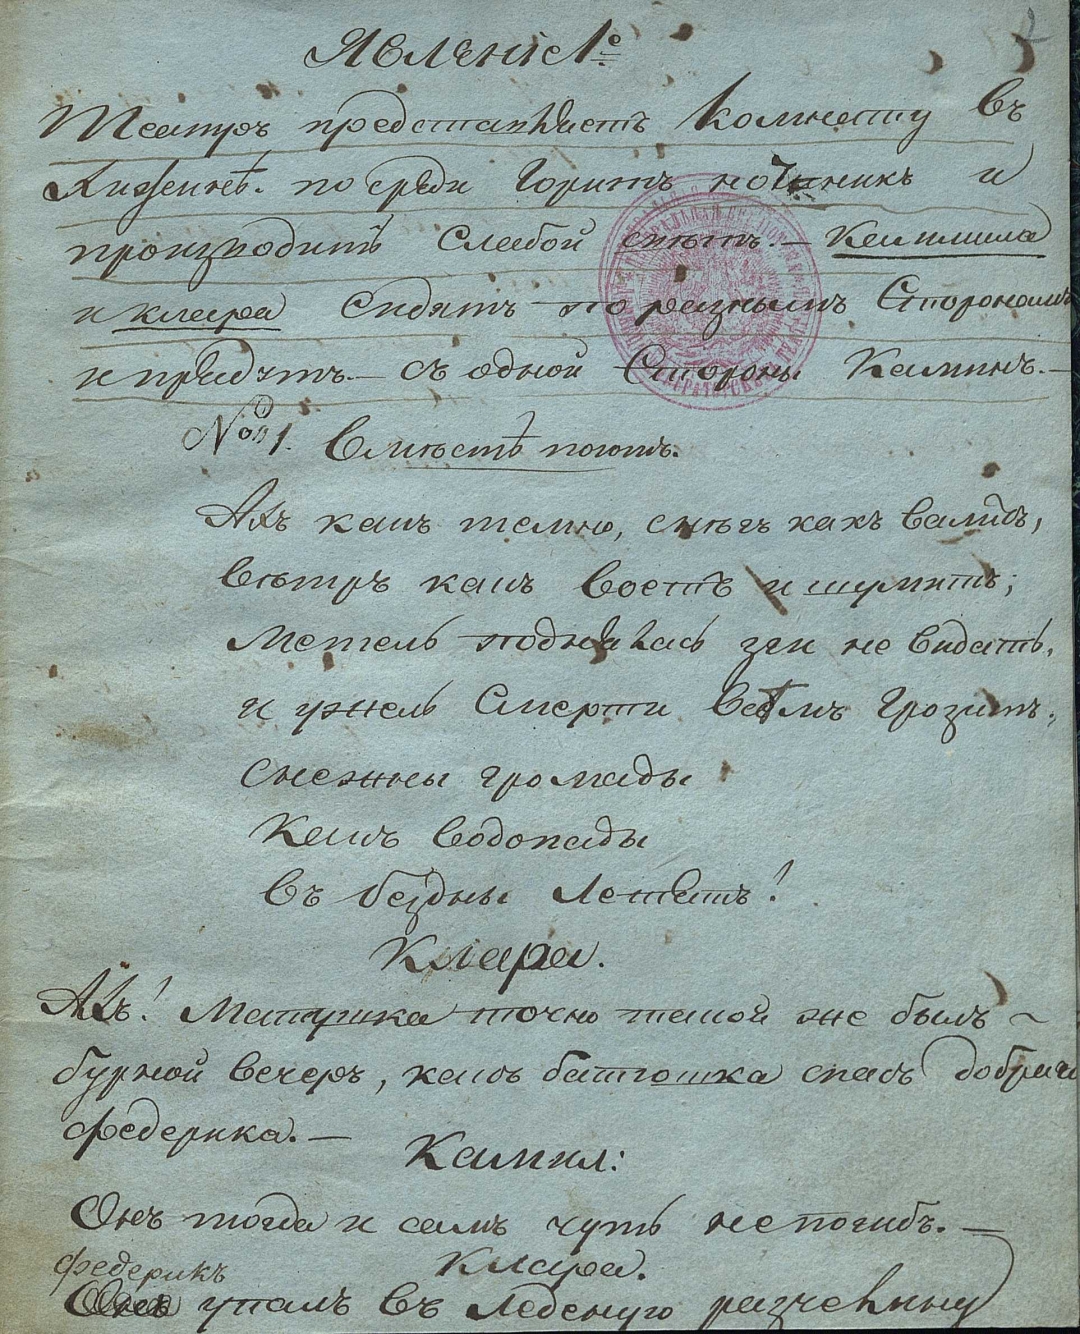 Явленіе 1е
Театръ представляетъ комнату въ
хижинѣ. по среди горитъ ночникъ и
производитъ слабой свѣтъ. — Камилла
и Клара сидятъ по разнымъ сторонамъ
и прядутъ. — съ одной стороны каминъ. —
№ 1. Вмѣстѣ поютъ.
Ахъ какъ темно, снѣгъ какъ валитъ,
вѣтръ какъ воетъ и шумитъ;
Метель поднялась зги не видать,
и ужель смерти всѣмъ грозитъ,
снежны громады
какъ водопады
въ бездны летятъ!
Клара.
Ахъ! Матушка точно такой же былъ
бурной вечеръ, какъ батюшка спасъ добраго
Федерика. —
Камил:
Онъ тогда и самъ чуть не погибъ. —
Клара.
Федерикъ
упалъ въ леденую